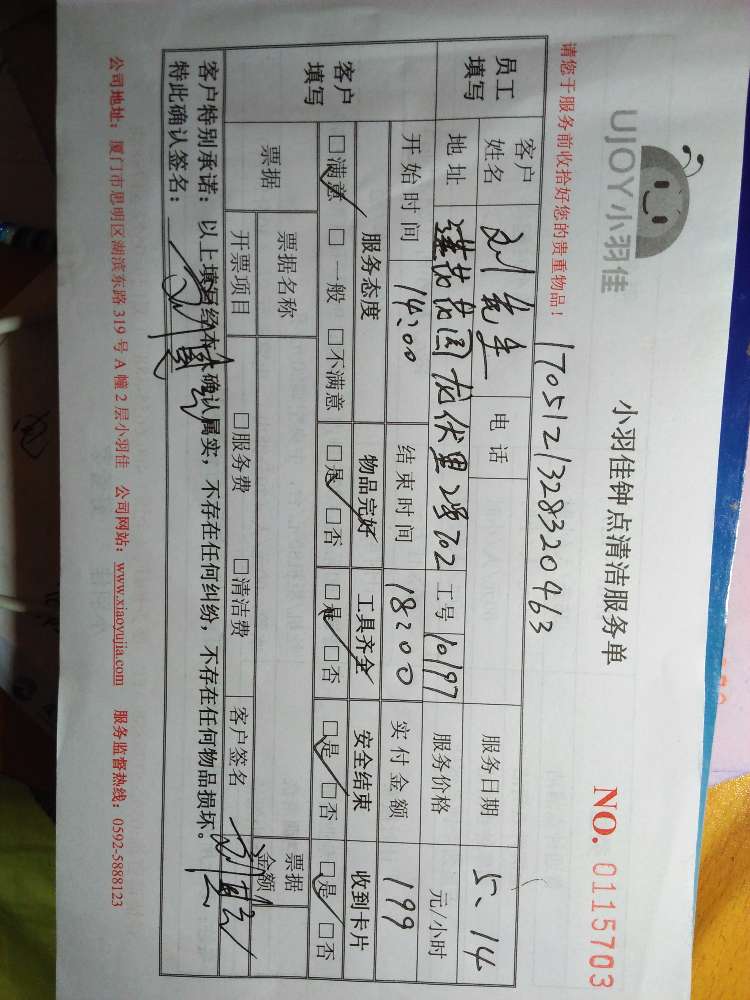 UJOY小羽佳
小羽佳钟点清洁服务单
NO. 0115703
请您于服务前收拾好您的贵重物品！
17051213283320463
员工填写
客户姓名 刘先生 电话 服务日期 5、14
地址 莲花 龙伏里 702 工号 10197 服务价格 元/小时
开始时间 14:00 结束时间 18:00 实付金额 199
客户填写
服务态度 物品完好 工具齐全 安全结束 收到卡片
□满意 □一般 □不满意 □是 □否 □是 □否 □是 □否 □是 □否
票据 票据名称 票据金额
开票项目 □服务费 □清洁费 客户签名
客户特别承诺：以上填写经本人确认属实，不存在任何纠纷，不存在任何物品损坏。
特此确认签名：
公司地址：厦门市思明区湖滨东路 319 号 A 幢 2 层小羽佳 公司网站：www.xiaoyujia.com 服务监督热线：0592-5888123